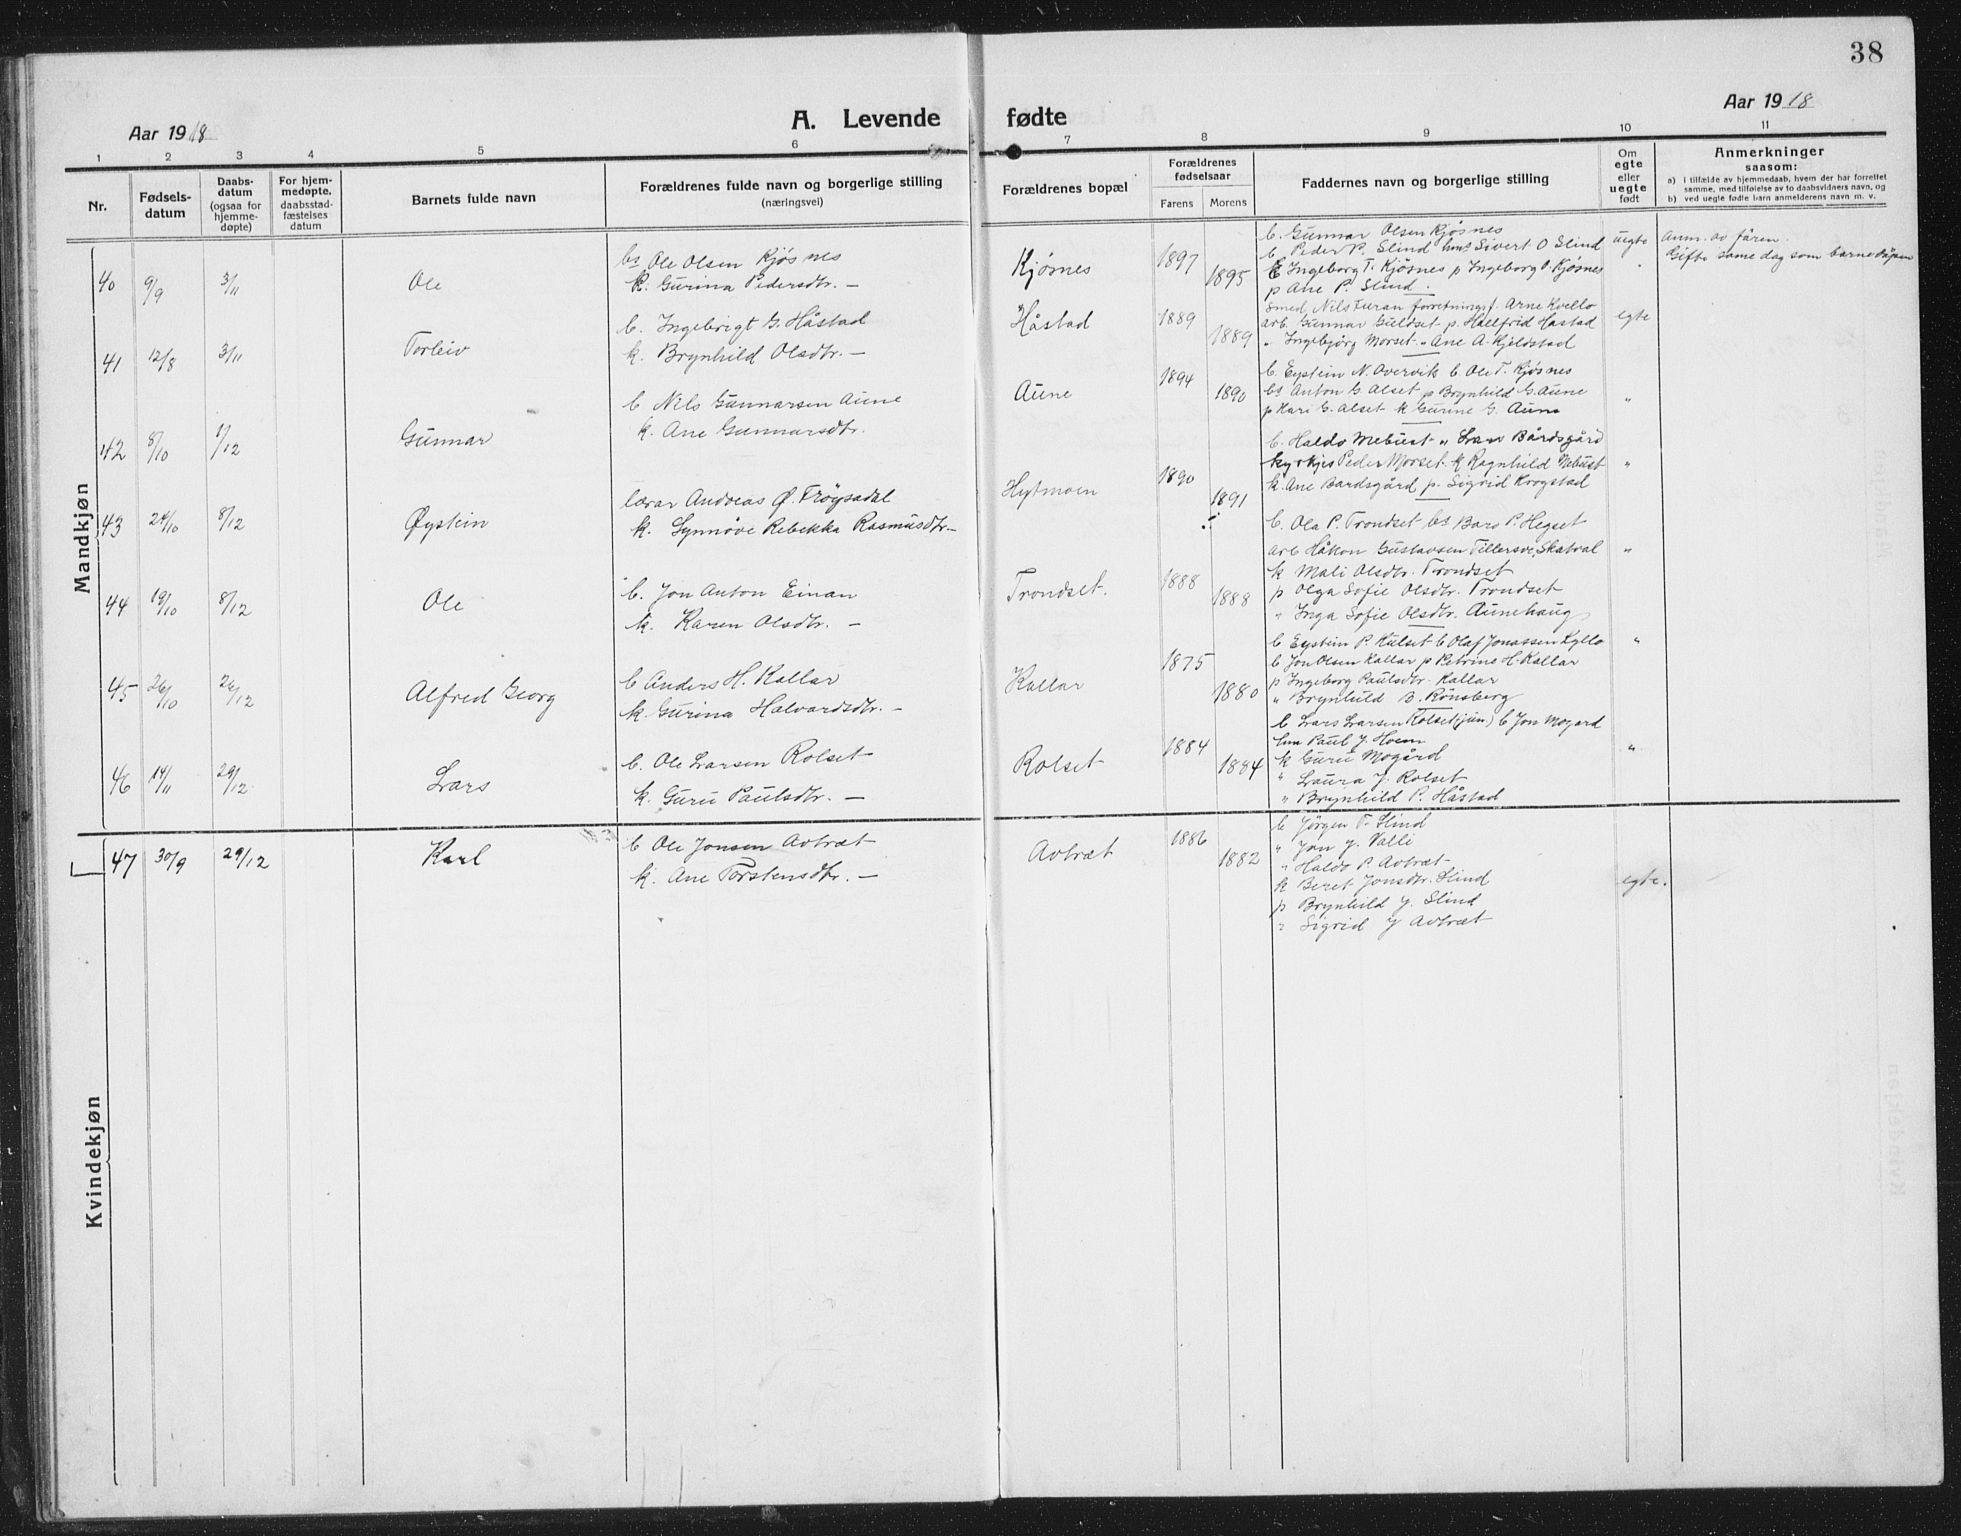 38
Aar 1918
A. Levende fødte
Aar 1918
1 2 3 4 5 6 7 8 9 10 11
Nr.
Fødsels-
datum
Daabs-
datum
(ogsaa for
hjemme-
døpte)
For hjem-
medøpte,
daabsstad-
fæstelses
datum
Barnets fulde navn
Forældrenes fulde navn og borgerlige stilling
(næringsvei)
Forældrenes bopæl
Forældrenes
fødselsaar
Farens Morens
Faddernes navn og borgerlige stilling
Om
egte
eller
uegte
født
Anmerkninger
saasom:
a) i tilfælde av hjemmedaab, hvem der har forrettet
samme, med tilføielse av to daabsvidners navn, og
b) ved uegte fødte barn anmelderens navn m. v.
Mandkjøn
40 9/9 3/11 Ole
bs Ole Olsen Kjøsnes
k. Gurina Pedersdtr. —
Kjøsnes 1897 1895
b. Gunnar Olsen Kjøsnes
b Peder P. Slind bms Sivert O Slind
k Ingeborg T. Kjøsnes p Ingeborg O. Kjøsnes
p Ane P. Slind.
uegte
Anm. av faren.
Gifte same dag som barnedåpen
41 12/8 3/11 Torleiv
b. Ingebrigt G. Håstad
k. Brynhild Olsdtr. —
Håstad 1889 1889
Smed Nils Furan forretningsf. Arne Kvello
arb. Gunnar Guldset p. Hallfrid Håstad
" Ingebjørg Morset " Ane A. Kjeldstad
egte
42 8/10 1/12 Gunnar
b Nils Gunnarsen Aune
k. Ane Gunnarsdtr.
Aune 1894 1890
b. Eystein N. Overvik b Ole T. Kjøsnes
bs Anton G Alset p Brynhild G. Aune
p Kari G. Alset k Gurine G. Aune
"
43 24/10 8/12 Øystein
lærar Andreas Ø. Frøysadal
k. Synnøve Rebekka Rasmusdtr —
Hytmoen 1890 1891
b. Haldo Mebust " Lars Bårdsgård
kyrkjes Peder Morset k Ragnhild Mebust
k. Ane Bardsgård p. Sigrid Krogstad
"
44 19/10 8/12 Ole
b. Jon Anton Einan
k. Karen Olsdtr. —
Trondset. 1888 1888
b. Ola P. Trondset bs Baro P. Hegset
arb Håkon Gustavsen Tillersve, Skatval
k Mali Olsdtr. Trondset
p Olga Sofie Olsdtr. Trondset
" Inga Sofie Olsdtr. Aunehaug
"
45 26/10 26/12 Alfred Georg
b Anders H. Kallar
k. Gurina Halvardsdtr. —
Kallar 1875 1880
b Eystein P. Hulset b Olaf Jonassen Kyllo
b Jon Olsen Kallar p Petrine H. Kallar
p Ingeborg Paulsdtr. Kallar
" Brynhild B. Rønsberg
"
46 14/11 29/12 Lars
b. Ole Larsen Rolset
k. Guru Paulsdtr. —
Rolset 1884 1884
b Lars Larsen Rolset (jun) b Jon Mogard
Paul J. Hoem
k Guru Mogård
" Laura J. Rolset
" Brynhild P. Håstad
"
47 30/9 29/12 Karl
b Ole Jonsen Avtræt
k. Ane Torstensdtr. —
Avtræt 1886 1882
b Jørgen T. Slind
" Jon J. Valli
" Haldo P. Avtræt
k Beret Jonsdtr. Slind
p Brynhild J. Slind
" Sigrid J Avtræt
egte.
Kvindekjøn